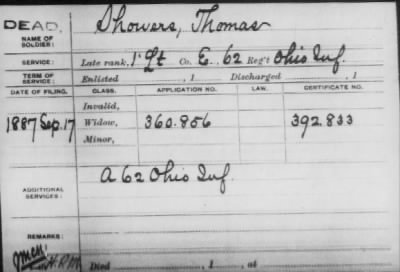 DEAD. Showers, Thomas
NAME OF SOLDIER:
SERVICE: Late rank, 1" Lt Co. E., 62 Reg't Ohio Inf.
TERM OF SERVICE: Enlisted , 1 Discharged , 1
DATE OF FILING. CLASS. APPLICATION NO. LAW. CERTIFICATE NO.
Invalid,
1887 Sep. 17 Widow, 360.856 392.833
Minor,
A 62 Ohio Inf.
ADDITIONAL SERVICES:
REMARKS:
Died , 1 , at